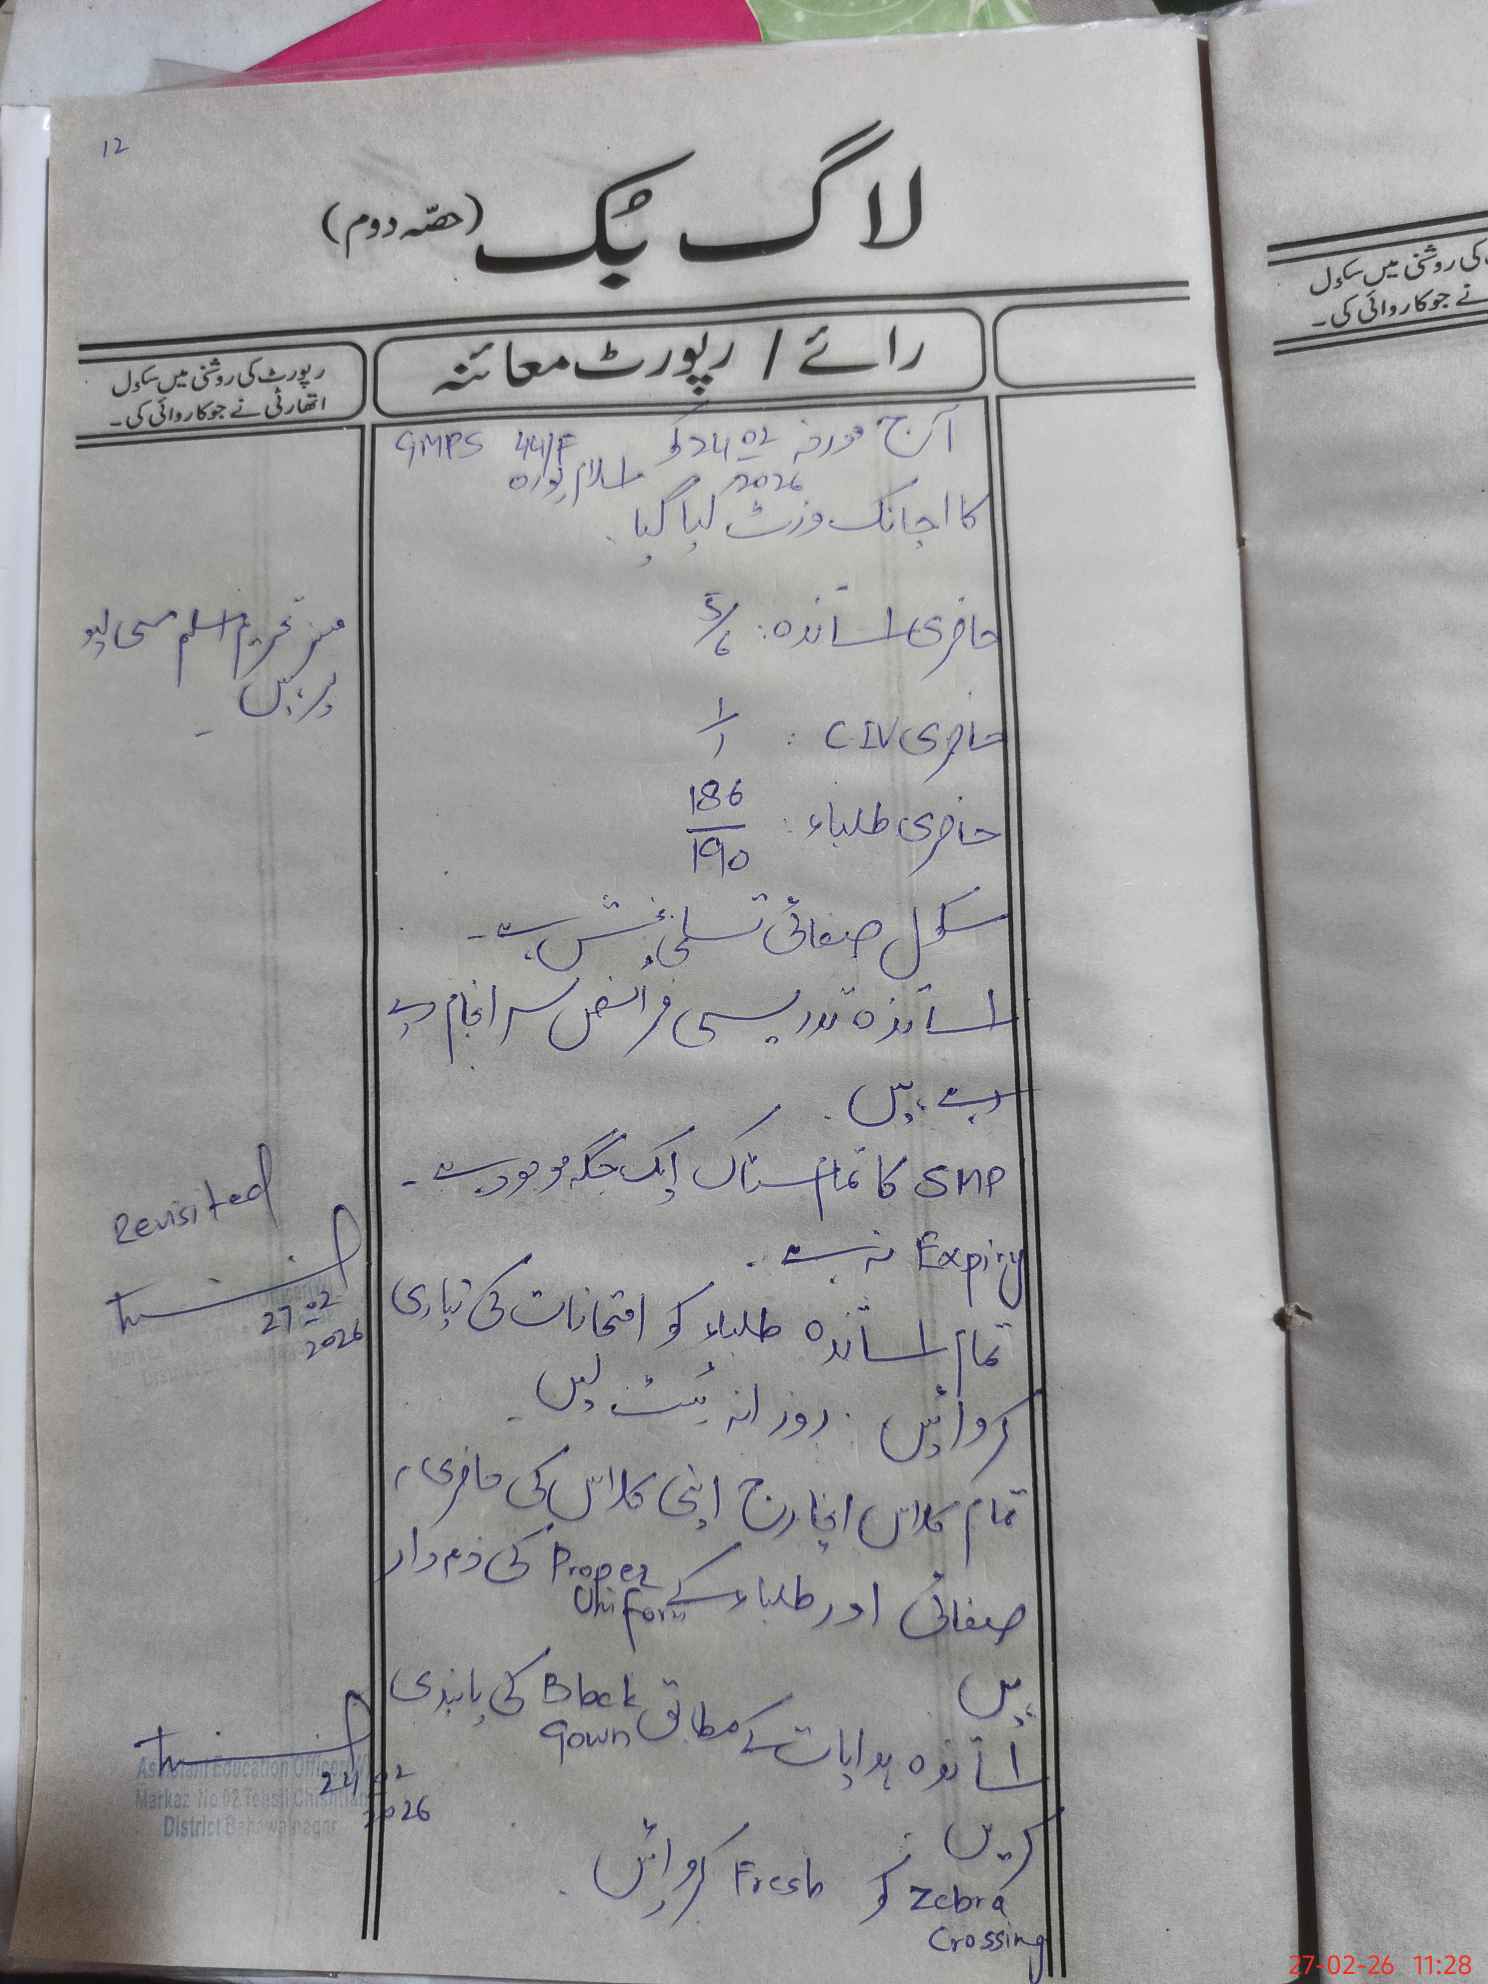 12
لاگ بک (حصّہ دوم)
رائے / رپورٹ معائنہ
رپورٹ کی روشنی میں سکول
اتھارٹی نے جو کاروائی کی۔
آج مورخہ 24-02-2026 کو GMPS 44/F اسلام پورہ
کا اچانک وزٹ کیا گیا۔
حاضری اساتذہ: 5/6
حاضری C.IV : 1/1
حاضری طلباء : 186/190
سکول صفائی تسلی بخش ہے۔
اساتذہ تدریسی فرائض سرانجام دے
رہے ہیں۔
SMP کا تمام سٹاک ایک جگہ موجود ہے۔
Expiry نہ ہے۔
تمام اساتذہ طلباء کو امتحانات کی تیاری
کروائیں۔ روزانہ ٹیسٹ لیں۔
تمام کلاس انچارج اپنی کلاس کی حاضری،
صفائی اور طلباء کے Proper Uniform کی ذمہ دار
ہیں
اساتذہ ہدایات کے مطابق Black Gown کی پابندی
کریں
Zebra Crossing کو Fresh کروائیں۔
مسز تحریم اسلم
پر ہیں۔
Revisited
27-02-2026
24-02-2026
Assistant Education Officer
Markaz No 02 Tehsil Chishtian
District Bahawalnagar
کی روشنی میں سکول
نے جو کاروائی کی۔
27-02-26 11:28